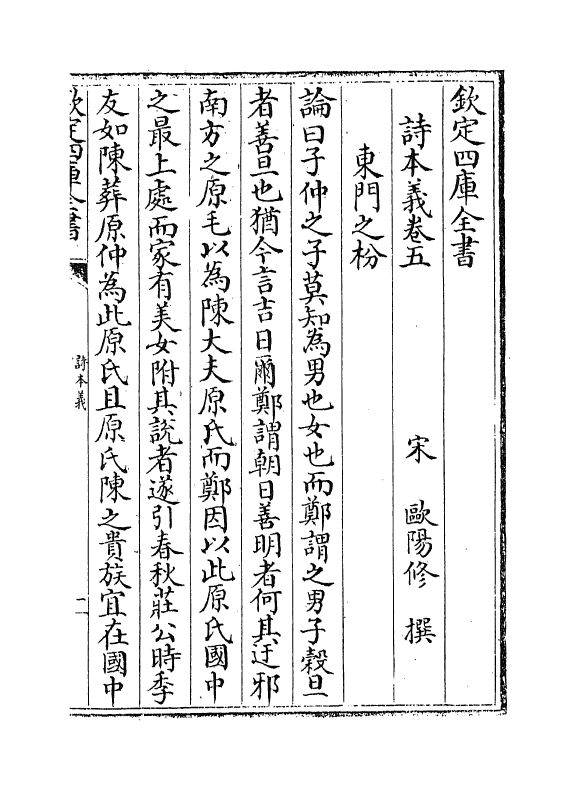 欽定四庫全書
詩本義卷五
宋 歐陽修 撰
東門之枌
論曰子仲之子莫知為男也女也而鄭謂之男子榖旦
者善旦也猶今言吉日爾鄭謂朝日善明者何其迂邪
南方之原毛以為陳大夫原氏而鄭因以此原氏國中
之最上處而家有美女附其說者遂引春秋莊公時季
友如陳葬原仲為此原氏且原氏陳之貴族宜在國中
欽定四庫全書
詩本義